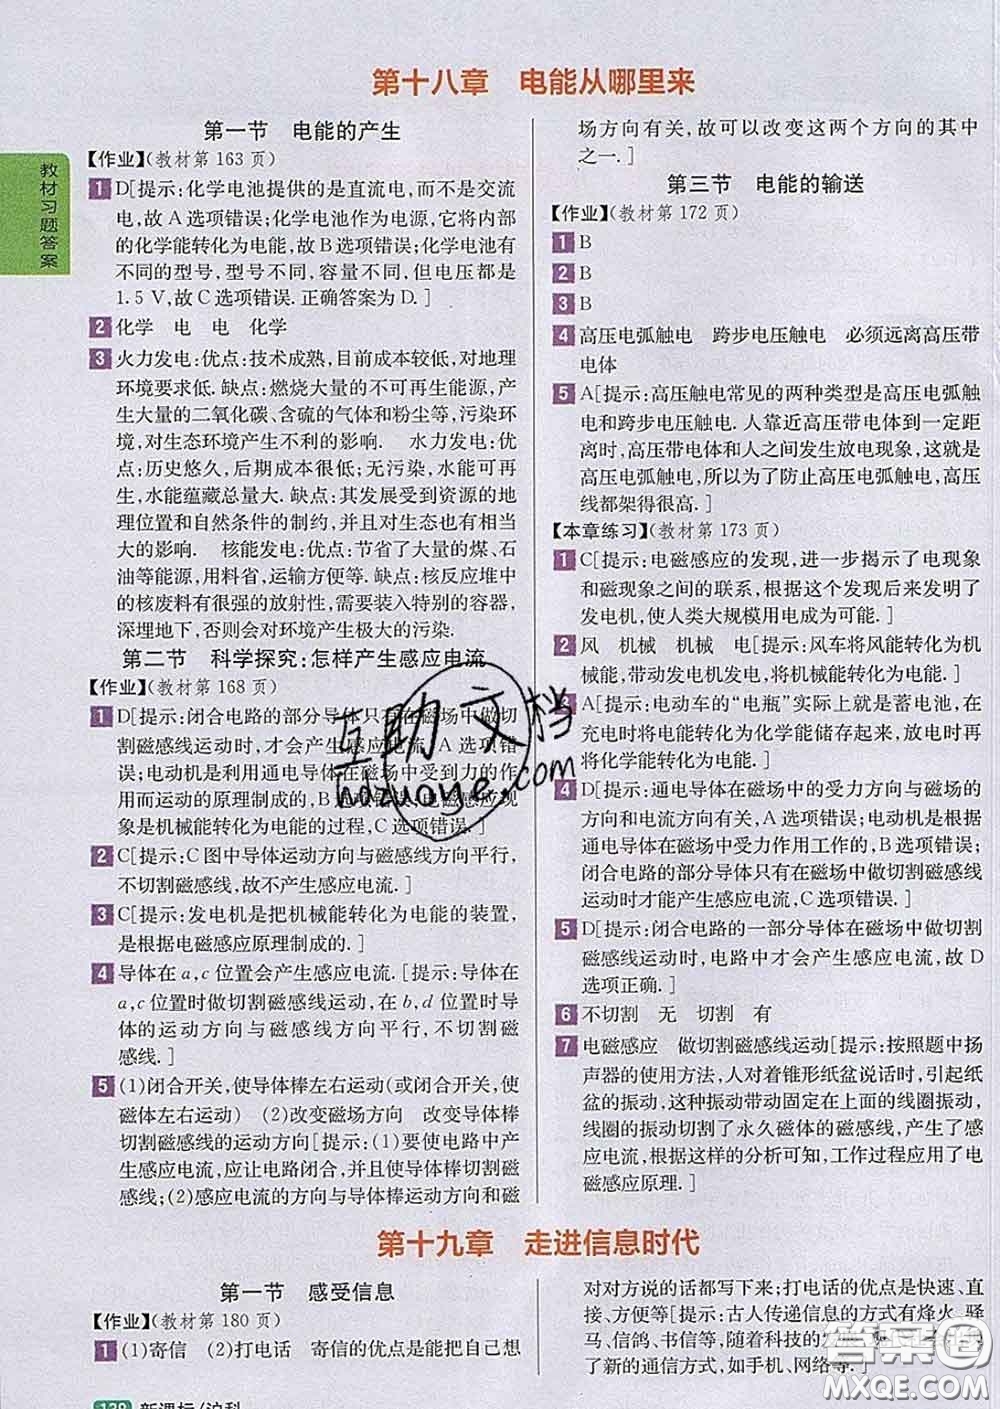 教材习题答案
第十八章　电能从哪里来
第一节　电能的产生
【作业】(教材第 163 页)
1 D[提示:化学电池提供的是直流电,而不是交流
电,故 A 选项错误;化学电池作为电源,它将内部
的化学能转化为电能,故 B 选项错误;化学电池有
不同的型号,型号不同,容量不同,但电压都是
1.5 V,故 C 选项错误. 正确答案为 D. ]
2 化学　电　电　化学
3 火力发电:优点:技术成熟,目前成本较低,对地理
环境要求低. 缺点:燃烧大量的不可再生能源,产
生大量的二氧化碳、含硫的气体和粉尘等,污染环
境,对生态环境产生不利的影响.　水力发电:优
点:历史悠久,后期成本很低;无污染,水能可再
生,水能蕴藏总量大. 缺点:其发展受到资源的地
理位置和自然条件的制约,并且对生态也有相当
大的影响.　核能发电:优点:节省了大量的煤、石
油等能源,用料省,运输方便等. 缺点:核反应堆中
的核废料有很强的放射性,需要装入特别的容器,
深埋地下,否则会对环境产生极大的污染.
第二节　科学探究:怎样产生感应电流
【作业】(教材第 168 页)
1 D[提示:闭合电路的部分导体只有在磁场中做切
割磁感线运动时,才会产生感应电流,A 选项错
误;电动机是利用通电导体在磁场中受到力的作
用而运动的原理制成的,B 选项错误;电磁感应现
象是机械能转化为电能的过程,C 选项错误. ]
2 C[提示:C 图中导体运动方向与磁感线方向平行,
不切割磁感线,故不产生感应电流. ]
3 C[提示:发电机是把机械能转化为电能的装置,
是根据电磁感应原理制成的. ]
4 导体在 a,c 位置会产生感应电流. [提示:导体在
a,c 位置时做切割磁感线运动,在 b,d 位置时导
体的运动方向与磁感线方向平行,不切割磁
感线. ]
5 (1)闭合开关,使导体棒左右运动(或闭合开关,使
磁体左右运动)　(2)改变磁场方向　改变导体棒
切割磁感线的运动方向[提示:(1)要使电路中产
生感应电流,应让电路闭合,并且使导体棒切割磁
感线;(2)感应电流的方向与导体棒运动方向和磁
场方向有关,故可以改变这两个方向的其中
之一. ]
第三节　电能的输送
【作业】(教材第 172 页)
1 B
2 B
3 B
4 高压电弧触电　跨步电压触电　必须远离高压带
电体
5 A[提示:高压触电常见的两种类型是高压电弧触
电和跨步电压触电. 人靠近高压带电体到一定距
离时,高压带电体和人之间发生放电现象,这就是
高压电弧触电,所以为了防止高压电弧触电,高压
线都架得很高. ]
【本章练习】(教材第 173 页)
1 C[提示:电磁感应的发现,进一步揭示了电现象
和磁现象之间的联系,根据这个发现后来发明了
发电机,使人类大规模用电成为可能. ]
2 风　机械　机械　电[提示:风车将风能转化为机
械能,带动发电机发电,将机械能转化为电能. ]
3 A[提示:电动车的“电瓶”实际上就是蓄电池,在
充电时将电能转化为化学能储存起来,放电时再
将化学能转化为电能. ]
4 D[提示:通电导体在磁场中的受力方向与磁场的
方向和电流方向有关,A 选项错误;电动机是根据
通电导体在磁场中受力作用工作的,B 选项错误;
闭合电路的部分导体只有在磁场中做切割磁感线
运动时才能产生感应电流,C 选项错误. ]
5 D[提示:闭合电路的一部分导体在磁场中做切割
磁感线运动时,电路中才会产生感应电流,故 D
选项正确. ]
6 不切割　无　切割　有
7 电磁感应　做切割磁感线运动[提示:按照题中扬
声器的使用方法,人对着锥形纸盆说话时,引起纸
盆的振动,这种振动带动固定在上面的线圈振动,
线圈的振动切割了永久磁体的磁感线,产生了感
应电流,根据这样的分析可知,工作过程应用了电
磁感应原理. ]
第十九章　走进信息时代
第一节　感受信息
【作业】(教材第 180 页)
1 (1)寄信　(2)打电话　寄信的优点是能把自己想
对对方说的话都写下来;打电话的优点是快速、直
接、方便等[提示:古人传递信息的方式有烽火、驿
马、信鸽、书信等,随着科技的发展
了新的通信方式,如手机、网络等. ]
新课标/沪科
互助文档
hdzuoye.com
答案圈
MXQE.COM